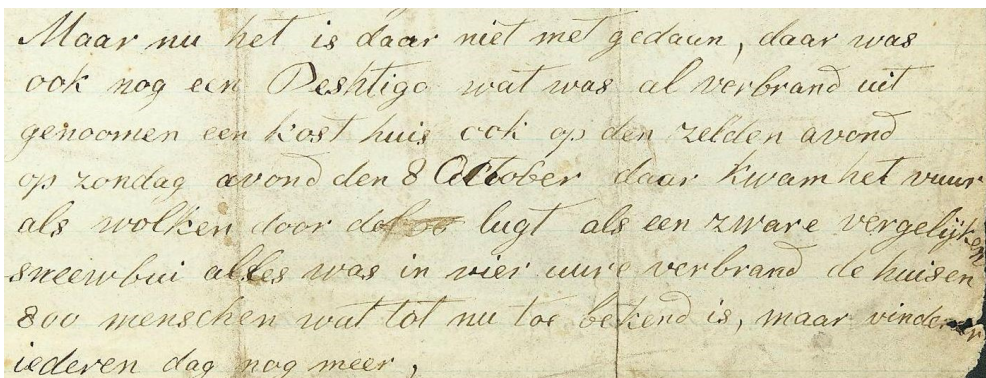 Maar nu het is daar niet met gedaan, daar was
ook nog een Peshtigo wat was al verbrand uit
genoomen een kost huis ook op den zelden avond
op zondag avond den 8 October daar kwam het vuur
als wolken door de lugt als een zware vergelijken
sneewbui alles was in vier uure verbrand de huisen
800 menschen wat tot nu toe bekend is, maar vinden er
iederen dag nog meer,